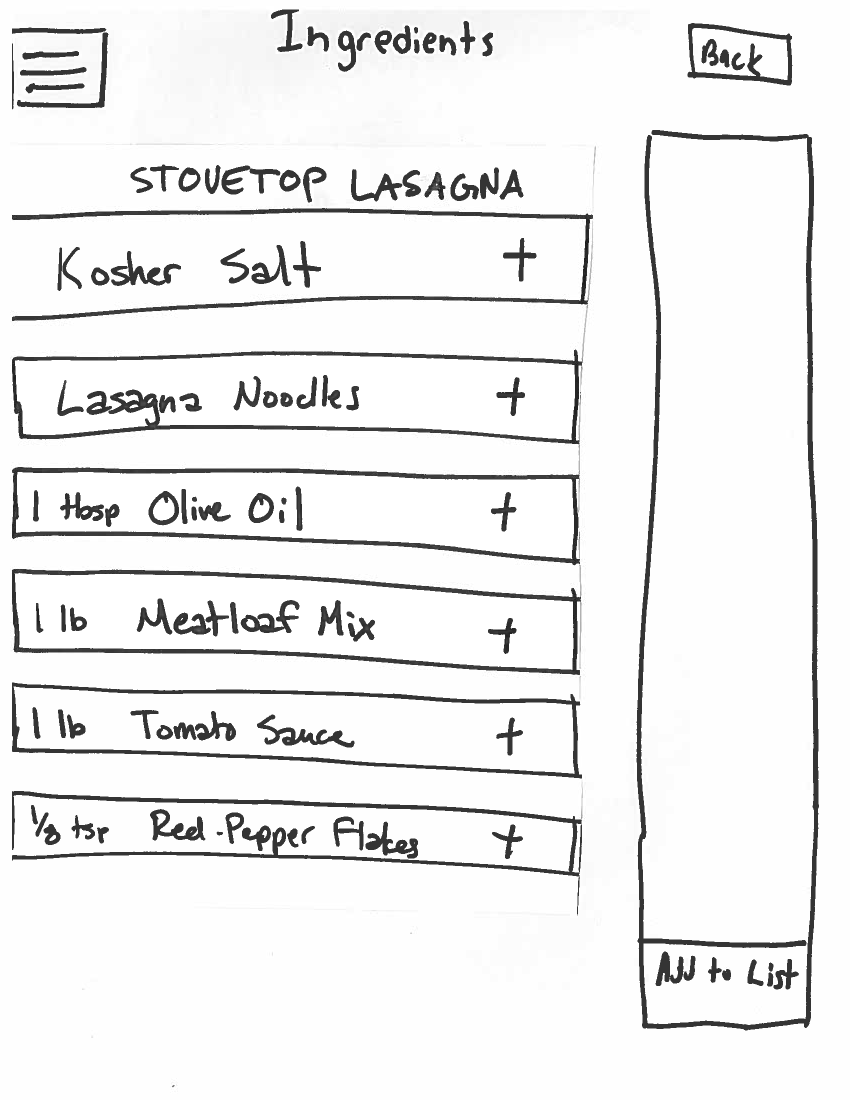 Ingredients
Back
STOVETOP LASAGNA
Kosher Salt +
Lasagna Noodles +
1 tbsp Olive Oil +
1 lb Meatloaf Mix +
1 lb Tomato Sauce +
1/8 tsp Red-Pepper Flakes +
Add to List